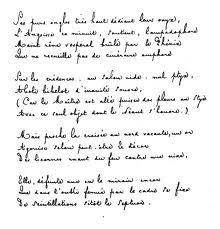 Ses purs ongles très haut dédiant leur onyx,
L'Angoisse ce minuit, soutient, lampadophore
Maint rêve vespéral brûlé par le Phénix
Qui ne recueille pas de cinéraire amphore
Sur les crédences, au salon vide : nul ptyx,
Aboli bibelot d'inanité sonore,
(Car le Maître est allé puiser des pleurs au Styx
Avec ce seul objet dont le Néant s'honore.)
Mais proche la croisée au nord vacante, un or
Agonise selon peut-être le décor
Des licornes ruant du feu contre une nixe,
Elle, défunte nue en le miroir encor
Que dans l'oubli fermé par le cadre se fixe
De scintillations sitôt le septuor.